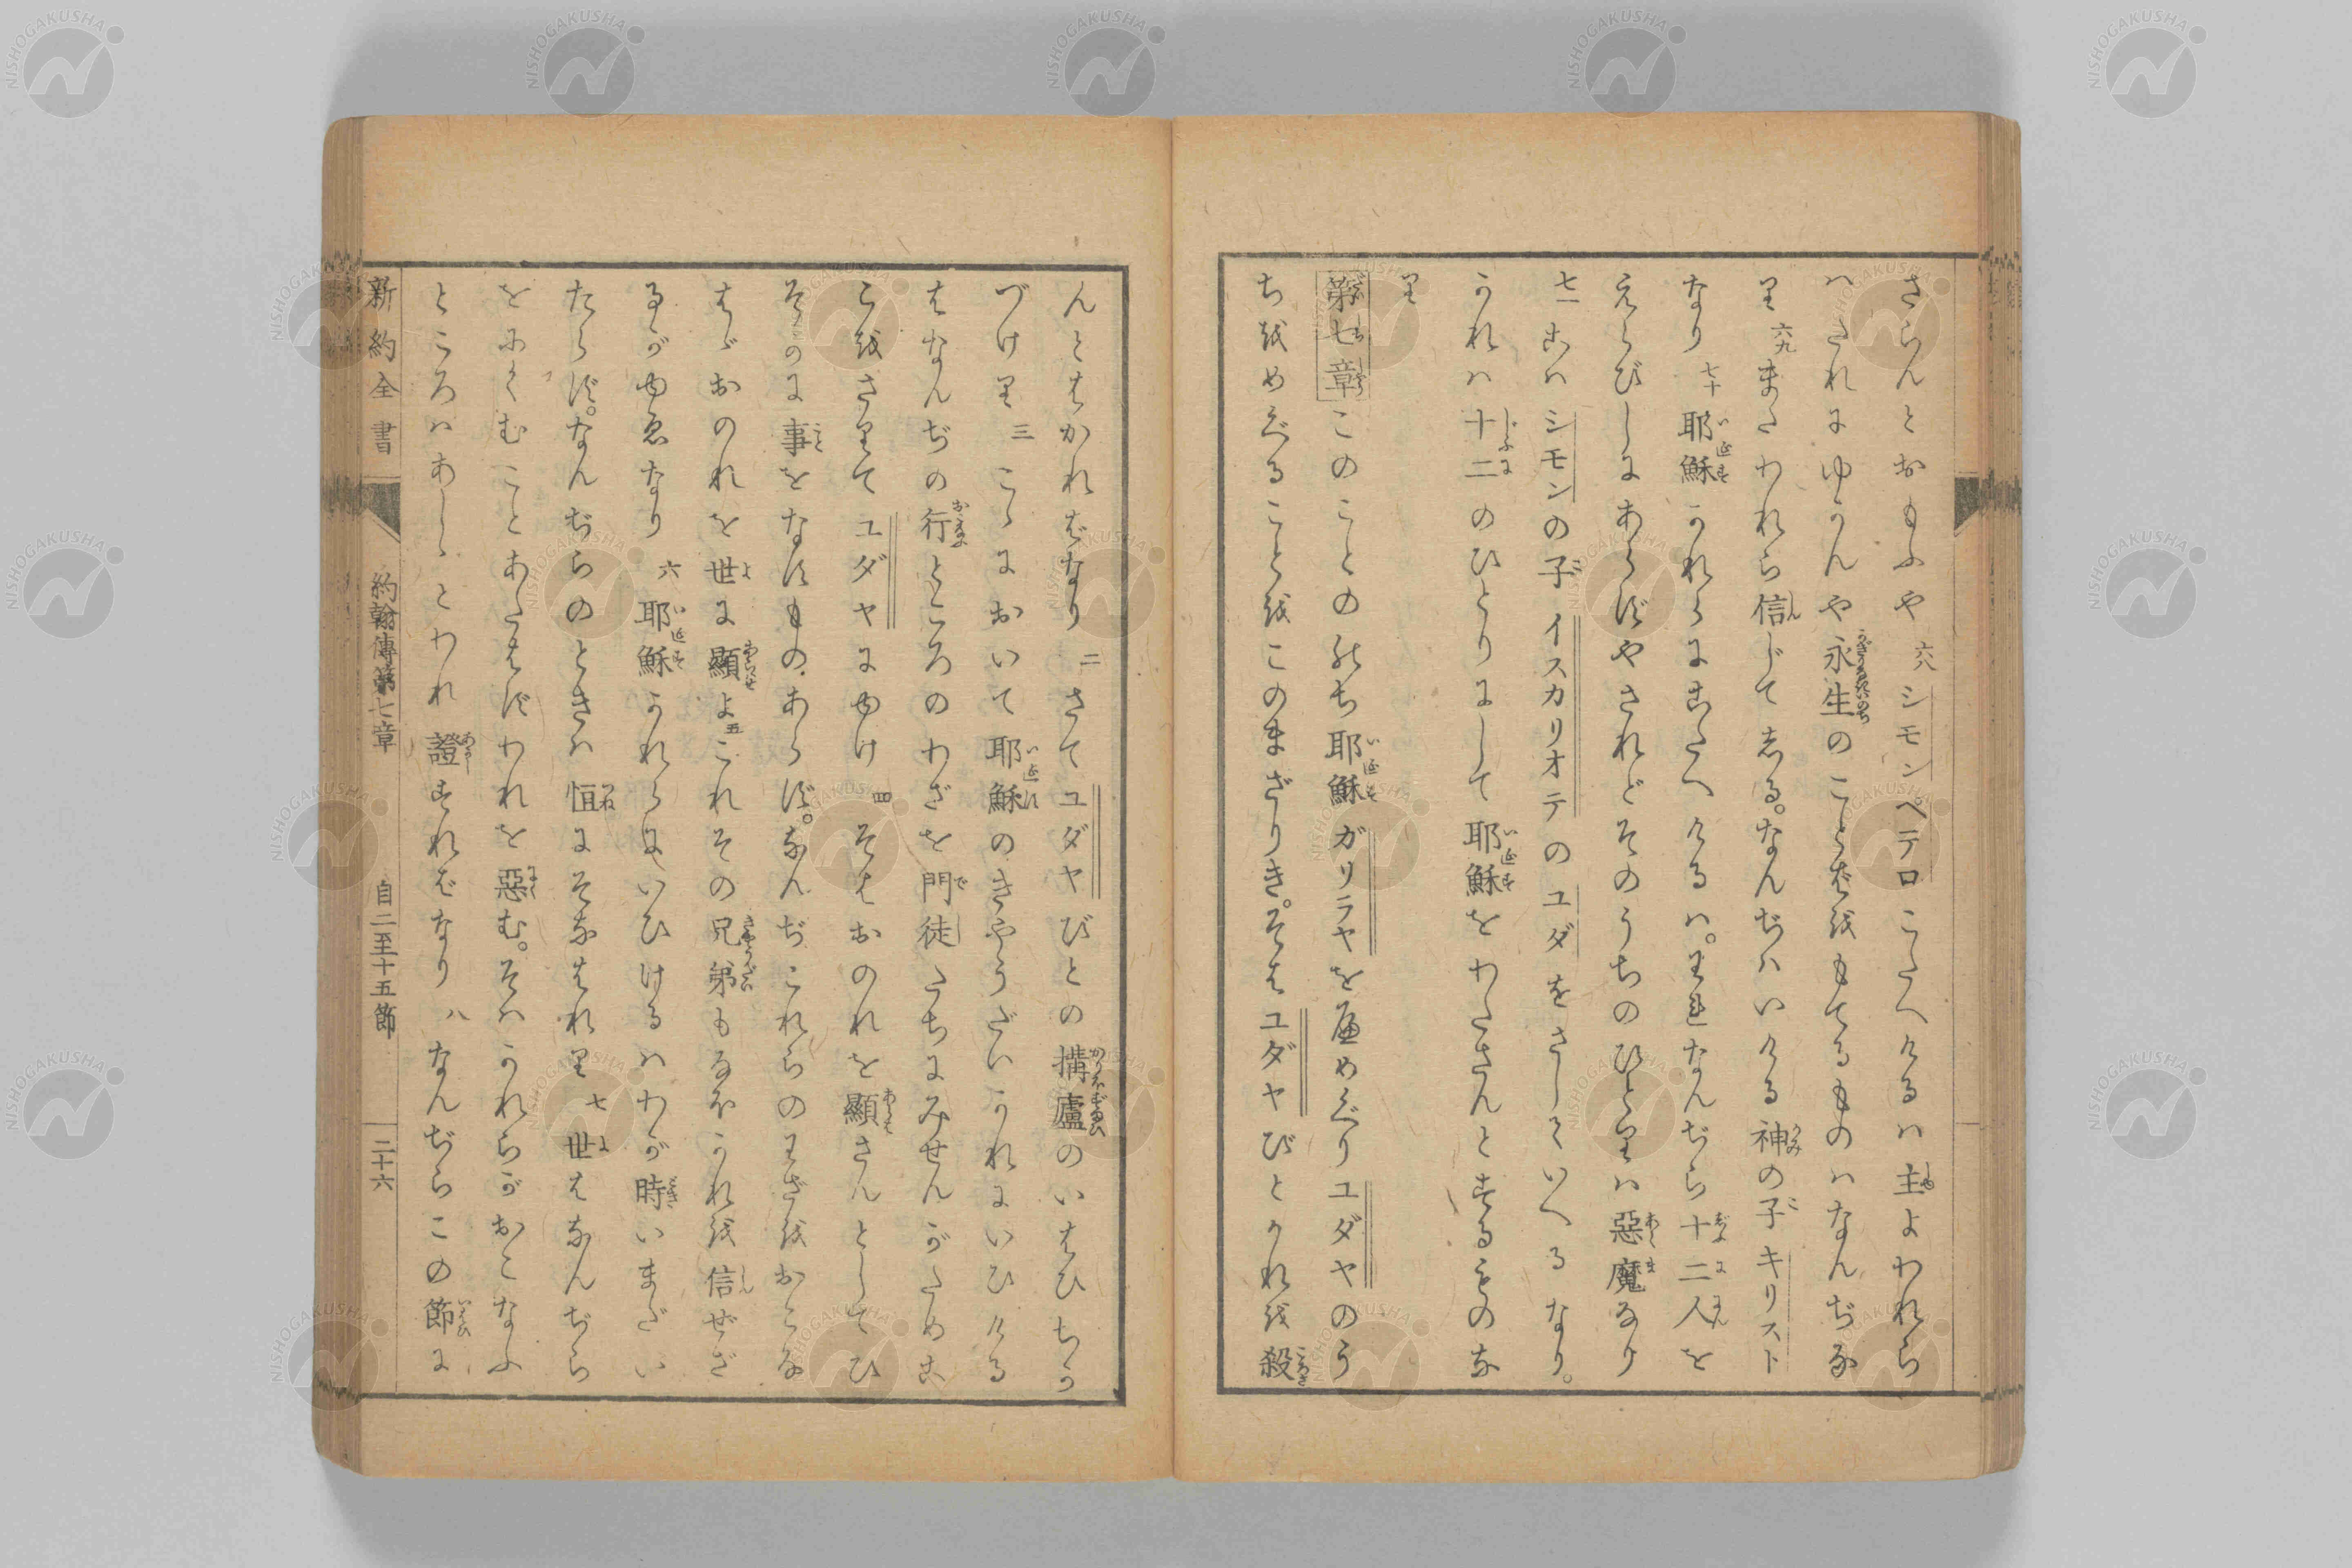 さらんとおもふや 六八 シモンペテロこたへけるハ主よわれら
ハたれにゆかんや永生のことばをもてるものハなんぢな
り 六九 またわれら信じてしる。なんぢハいける神の子キリスト
なり 七十 耶穌かれらにこたへけるハ。われなんぢら十二人を
えらびしにあらずやされどそのうちのひとりハ惡魔なり
七一 こハシモンの子イスカリオテのユダをさしていへるなり。
かれハ十二のひとりにして耶穌をわたさんとするものな
り
第七章 このことののち耶穌ガリラヤを廵めぐりユダヤのう
ちをめぐることをこのまざりき。そはユダヤびとかれを殺
んとはかればなり 二 さてユダヤびとの搆廬のいはひちか
づけり 三 こゝにおいて耶穌のきやうだいかれにいひける
はなんぢの行ところのわざを門徒たちにみせんがためこ
こをさりてユダヤにゆけ 四 そはおのれを顯さんとしてひ
そかに事をなすものあらず。なんぢこれらのわざをおこな
はゞおのれを世に顯せよ 五 これその兄弟もなほかれを信ぜざ
るがゆゑなり 六 耶穌かれらにいひけるハわが時いまだい
たらず。なんぢらのときハ恒にそなはれり 七 世はなんぢら
をにくむことあたはずわれを惡む。そハかれらがおこなふ
ところハあしゝとわれ證すればなり 八 なんぢらこの節に
新約全書 約翰傳第七章 自二至十五節 二十六